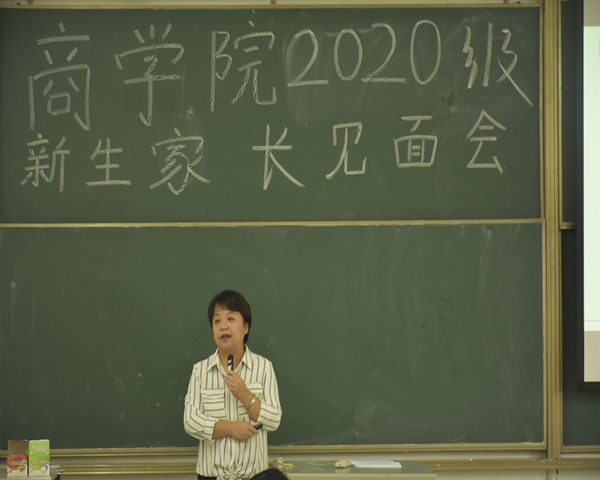 商学院2020级
新生家长见面会